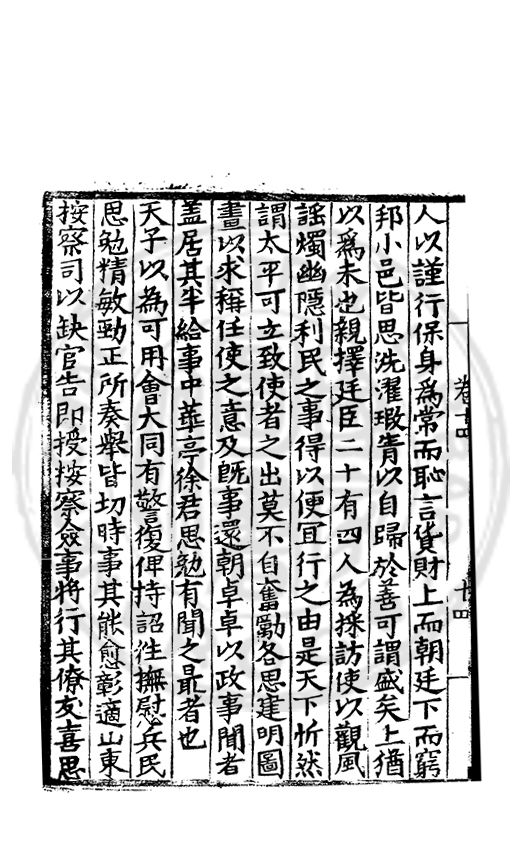 人以謹行保身爲常而恥言貨財上而朝廷下而窮
邦小邑皆思洗濯瑕眚以自歸於善可謂盛矣上猶
以爲未也親擇廷臣二十有四人為採訪使以觀風
謡燭幽隱利民之事得以便冝行之由是天下忻然
謂太平可立致使者之出莫不自奮勵各思建明圖
晝以求稱任使之意及旣事還朝卓卓以政事聞者
盖居其半給事中華亭徐君思勉有聞之最者也
天子以為可用會大同有警復俾持詔徃撫慰兵民
思勉精敏勁正所奏舉皆切時事其能愈彰適山東
按察司以缺官告即授按察僉事将行其僚友喜思
卷十四
十四